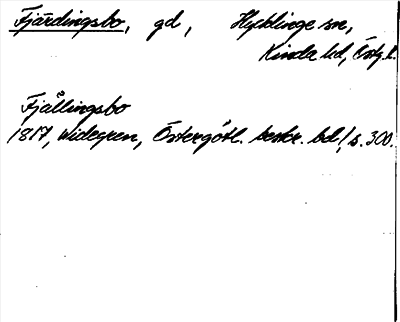 Fjärdingsbo, gd, Hycklinge sn,
Kinda hd, Östg. l.
Fjällingsbo
1817, Widegren, Östergötl. beskr. bd 1, s. 300.